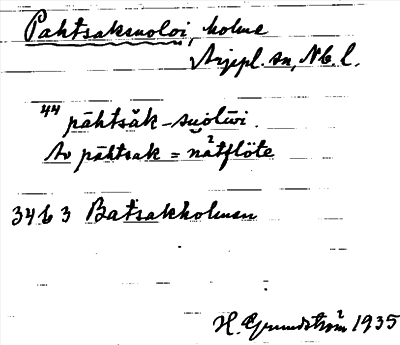 Pahtsaksuoloi, holme
Arjepl. sn, Nb. l.
44 pāhtsăk-suŏlūi.
Av pāhtsak = nåtflöte
34 b 3 Batsakholmen
H. Grundström 1935